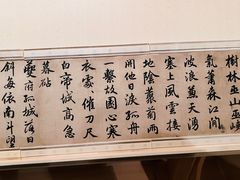 樹林巫山巫峽
氣蕭森江間
波浪兼天湧
塞上風雲接
地陰叢菊兩
開他日淚孤舟
一繫故園心寒
衣處〻催刀尺
白帝城高急
暮砧
夔府孤城落日
斜每依南斗望